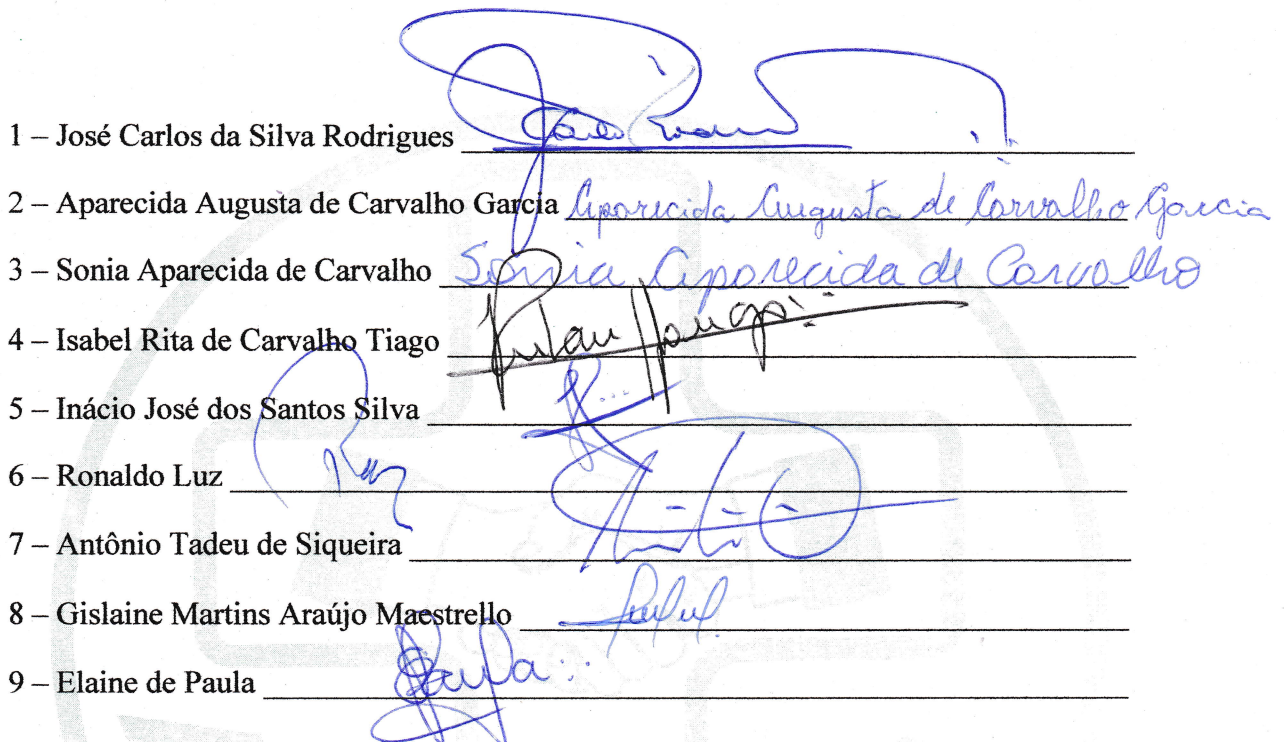 1 – José Carlos da Silva Rodrigues
2 – Aparecida Augusta de Carvalho Garcia Aparecida Augusta de Carvalho Garcia
3 – Sonia Aparecida de Carvalho Sonia Aparecida de Carvalho
4 – Isabel Rita de Carvalho Tiago
5 – Inácio José dos Santos Silva
6 – Ronaldo Luz
7 – Antônio Tadeu de Siqueira
8 – Gislaine Martins Araújo Maestrello
9 – Elaine de Paula